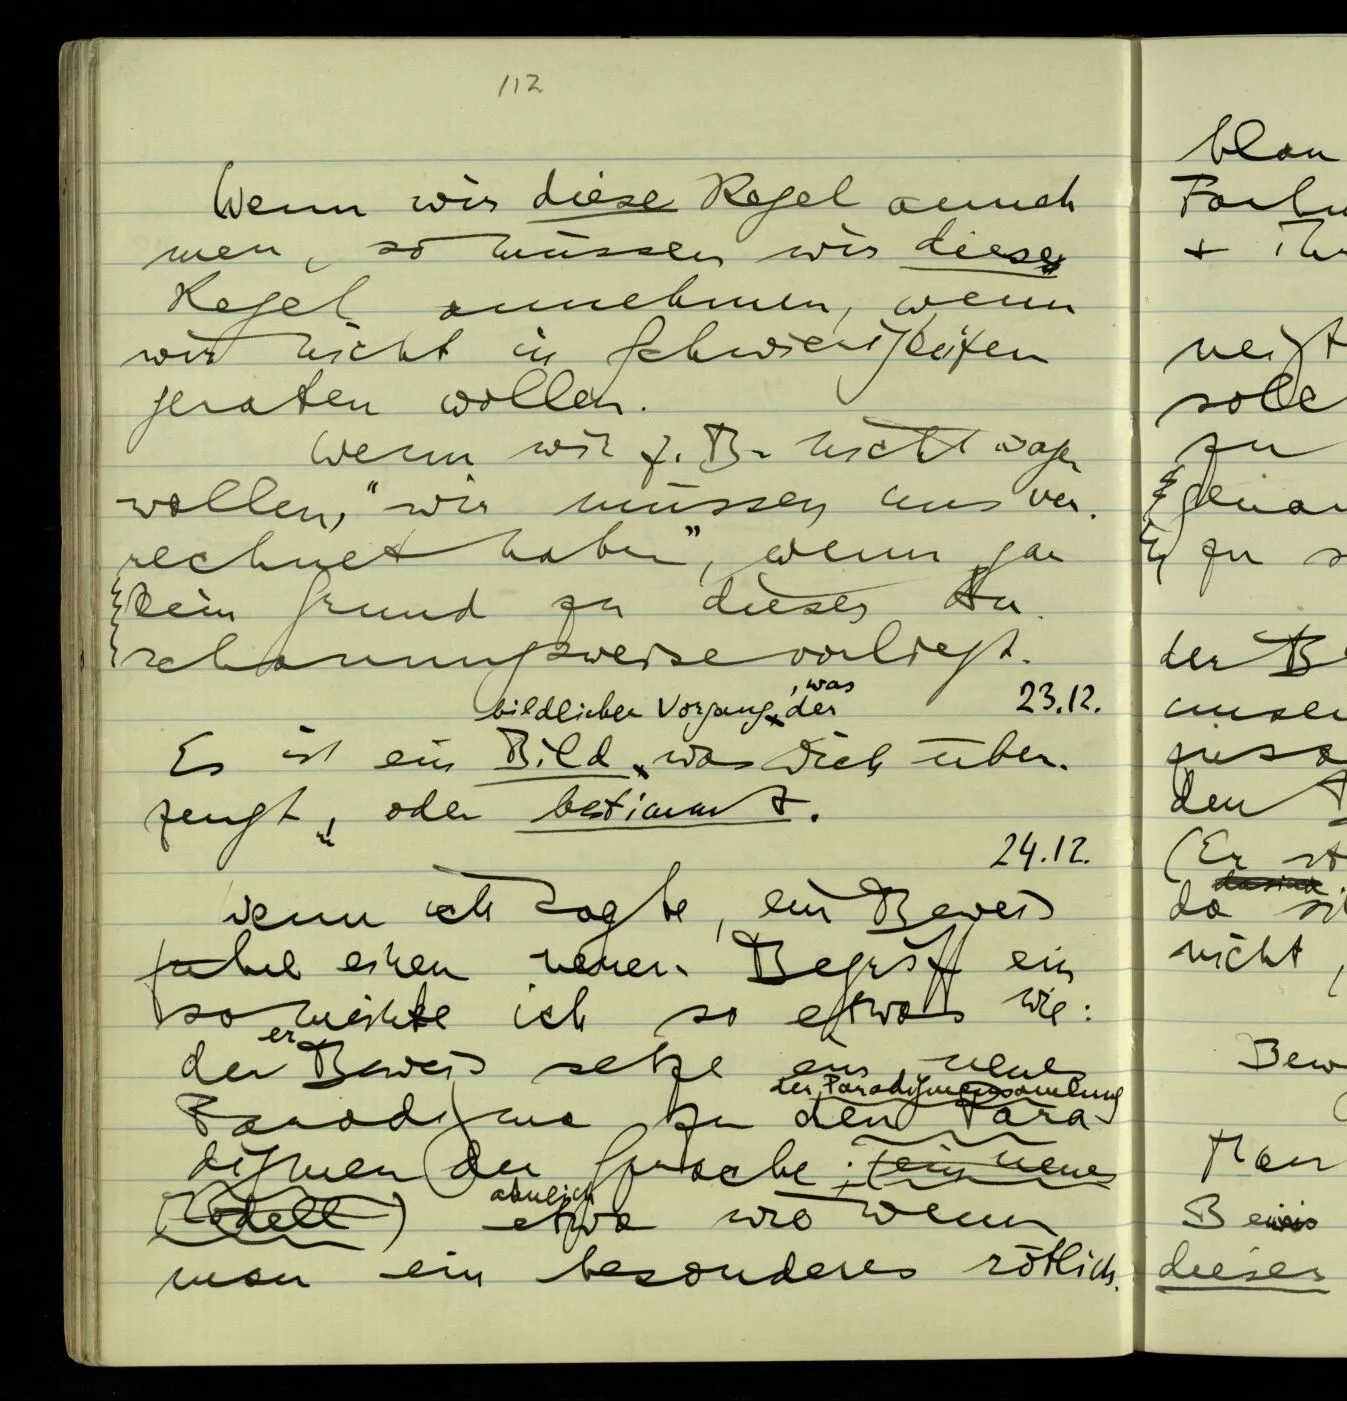 112
Wenn wir diese Regel anneh
men, so müssen wir diese
Regel annehmen, wenn
wir nicht in Schwierigkeiten
geraten wollen.
Wenn wir z. B. nicht sagen
wollen, "wir müssen uns ver-
rechnet haben", wenn gar
kein Grund zu dieser An-
schauungsweise vorliegt.
23.12.
bildlicher Vorgang, der
, was
Es ist ein Bild, was Dich über-
zeugt, oder bestimmt.
24.12.
Wenn ich sagte, ein Beweis
führe einen neuen Begriff ein
so meinte ich so etwas wie:
er
der Beweis setze ein neues
der Paradigmensammlung
Paradigma zu den Para-
digmen der Sprache; (ein neues
Modell)
ähnlich
etwa wie wenn
man ein besonderes rötlich-
blau
+ ihr
neigt
solch
zu
zu s
der B
unser
den
(Er st
da si
nicht,
Bew
Man
Beweis
dieser